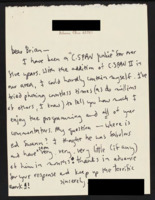 Dear Brian—
I have been a "C-SPAN junkie" for over
five years. With the addition of C-SPAN II in
our area, I could hardly contain myself. I've
tried phoning countless times (as do millions
of others, I know) to tell you how much I
enjoy the programming and all of your
commentators. My question — where is
I thought he was fabulous
and have seen very, very little (if any)
of him in months! Thanks in advance
for your response and keep up the terrific
work!!
Sincerely,